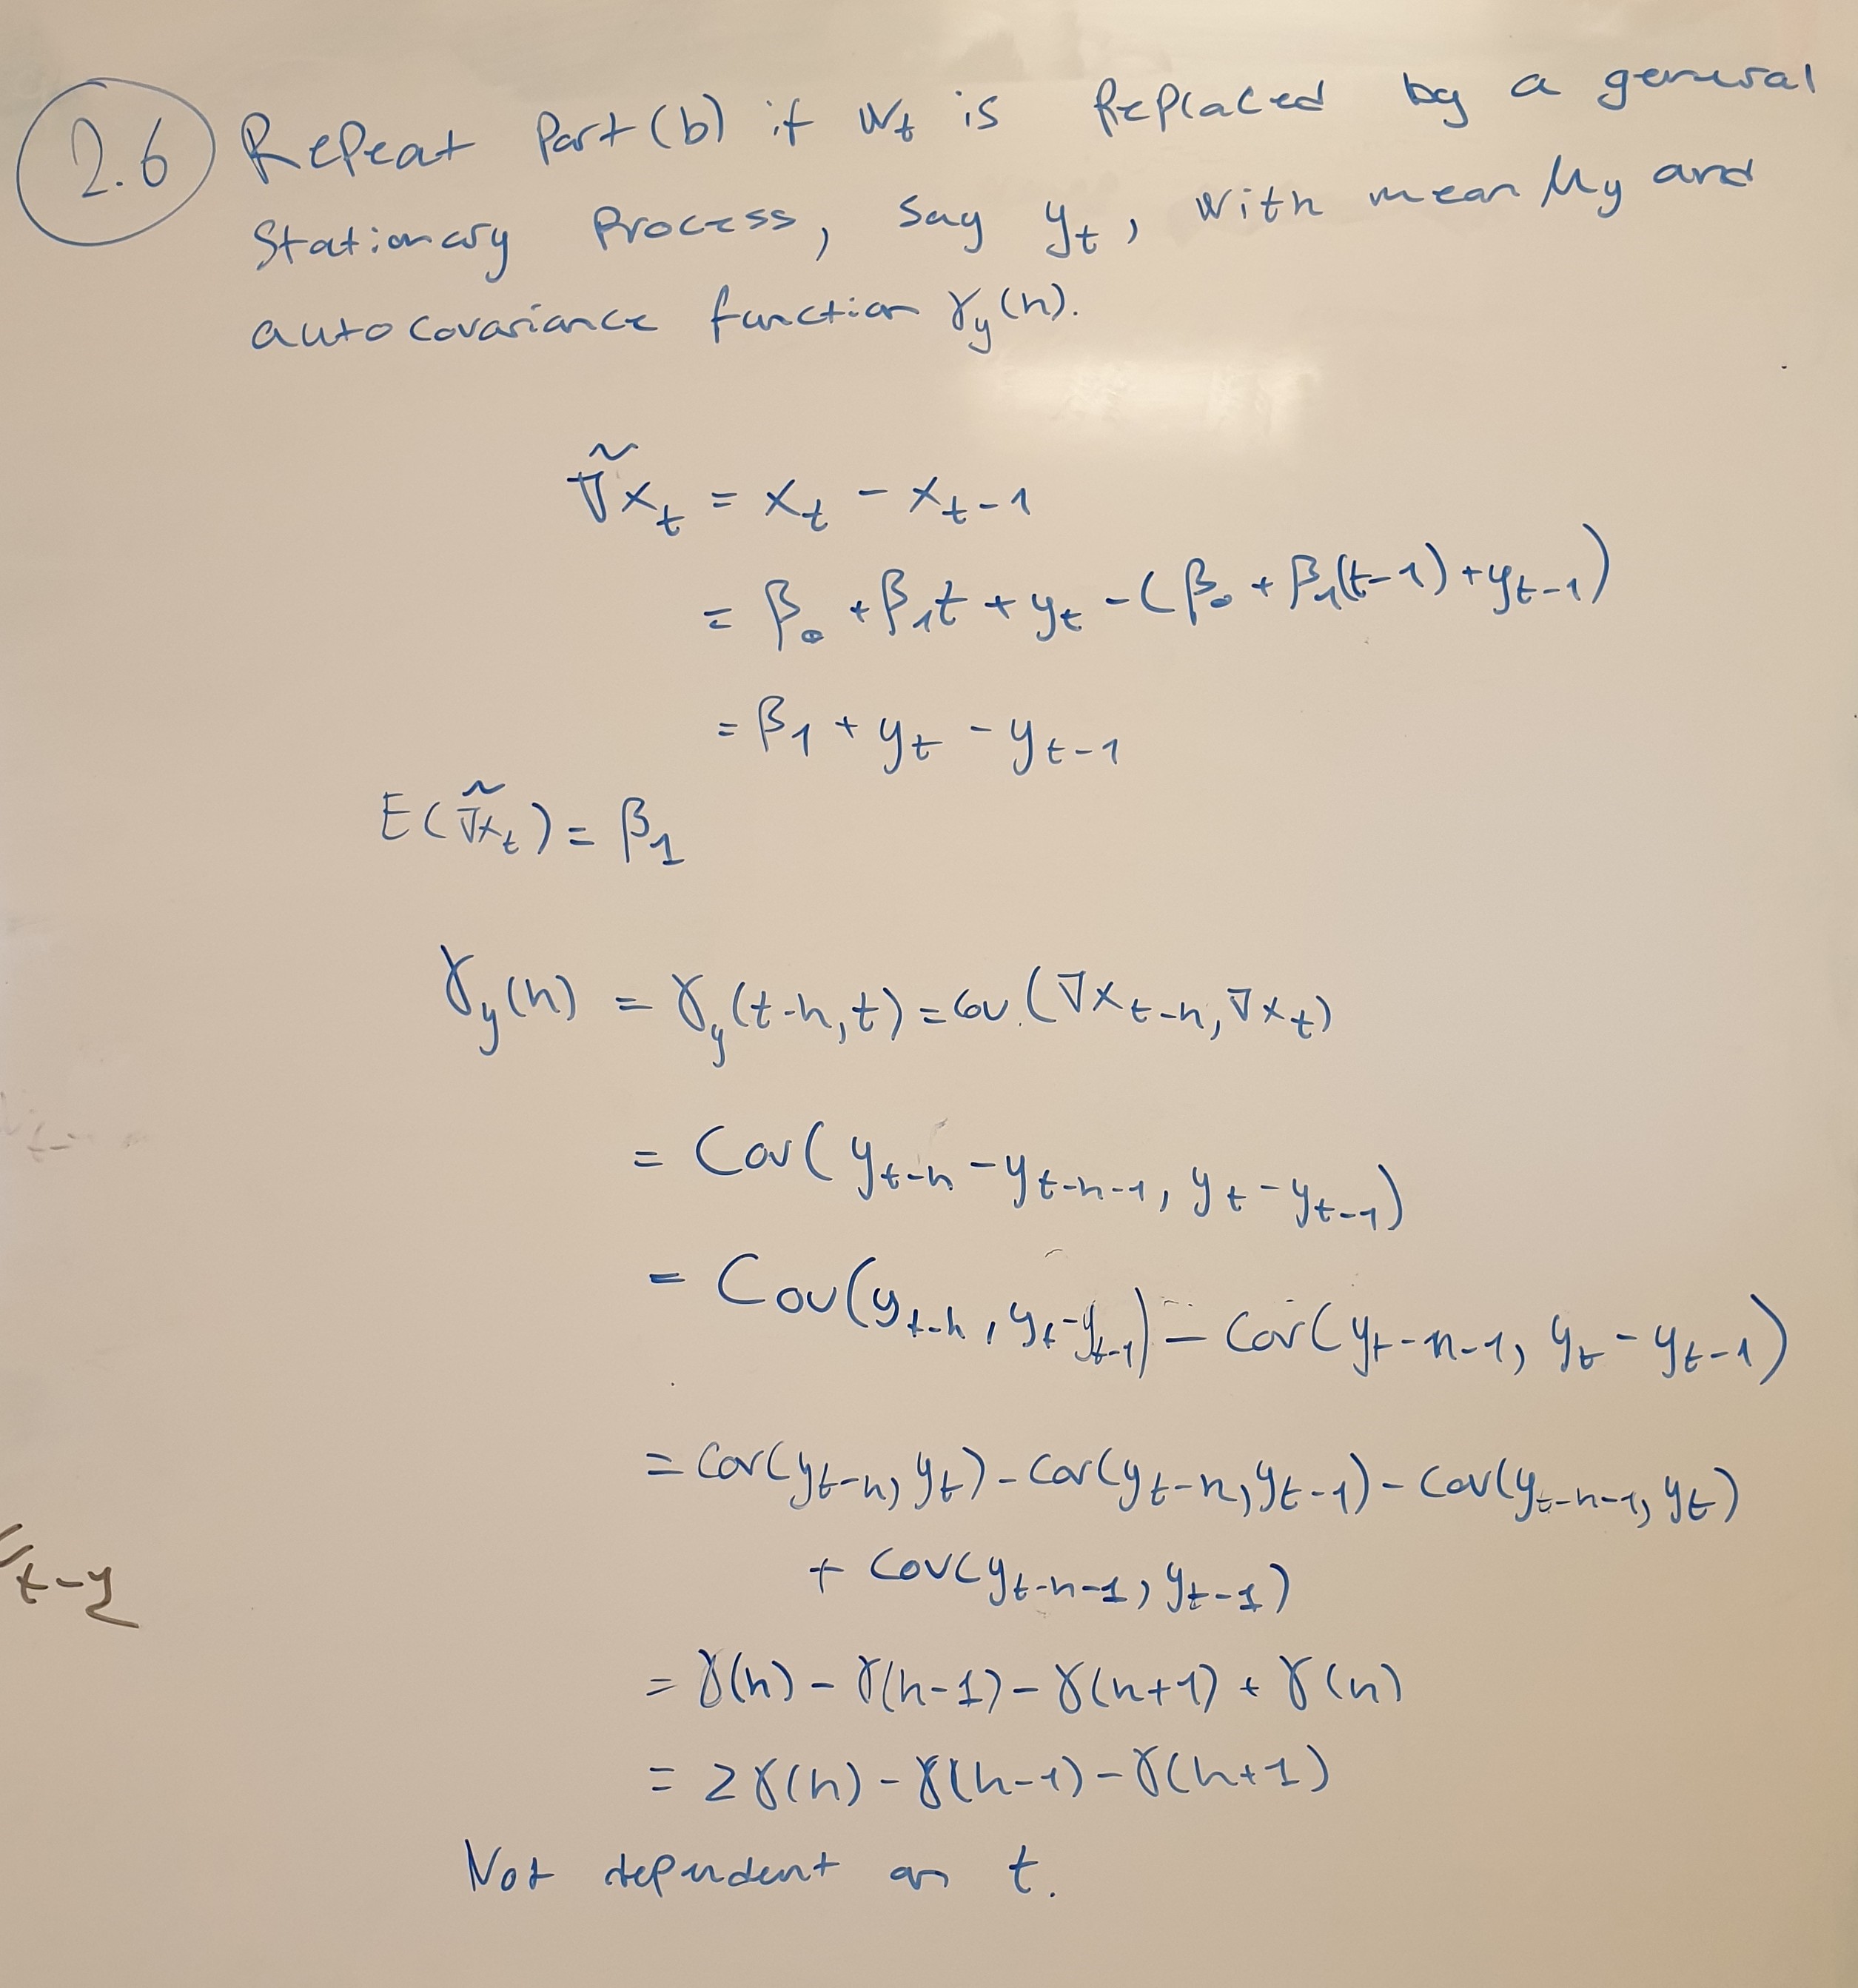 2.6 Repeat Part (b) if wₜ is Replaced by a general
Stationary Process, say yₜ, with mean μ_y and
autocovariance function γ_y(h).
∇̃xₜ = xₜ - xₜ₋₁
= β₀ + β₁t + yₜ - (β₀ + β₁(t-1) + yₜ₋₁)
= β₁ + yₜ - yₜ₋₁
E(∇̃xₜ) = β₁
γ_y(h) = γ_y(t-h, t) = Cov(∇x_{t-h}, ∇xₜ)
= Cov(y_{t-h} - y_{t-h-1}, yₜ - yₜ₋₁)
= Cov(y_{t-h}, yₜ - yₜ₋₁) - Cov(y_{t-h-1}, yₜ - yₜ₋₁)
= Cov(y_{t-h}, yₜ) - Cov(y_{t-h}, yₜ₋₁) - Cov(y_{t-h-1}, yₜ)
+ Cov(y_{t-h-1}, yₜ₋₁)
t-y
= γ(h) - γ(h-1) - γ(h+1) + γ(h)
= 2γ(h) - γ(h-1) - γ(h+1)
Not dependent on t.